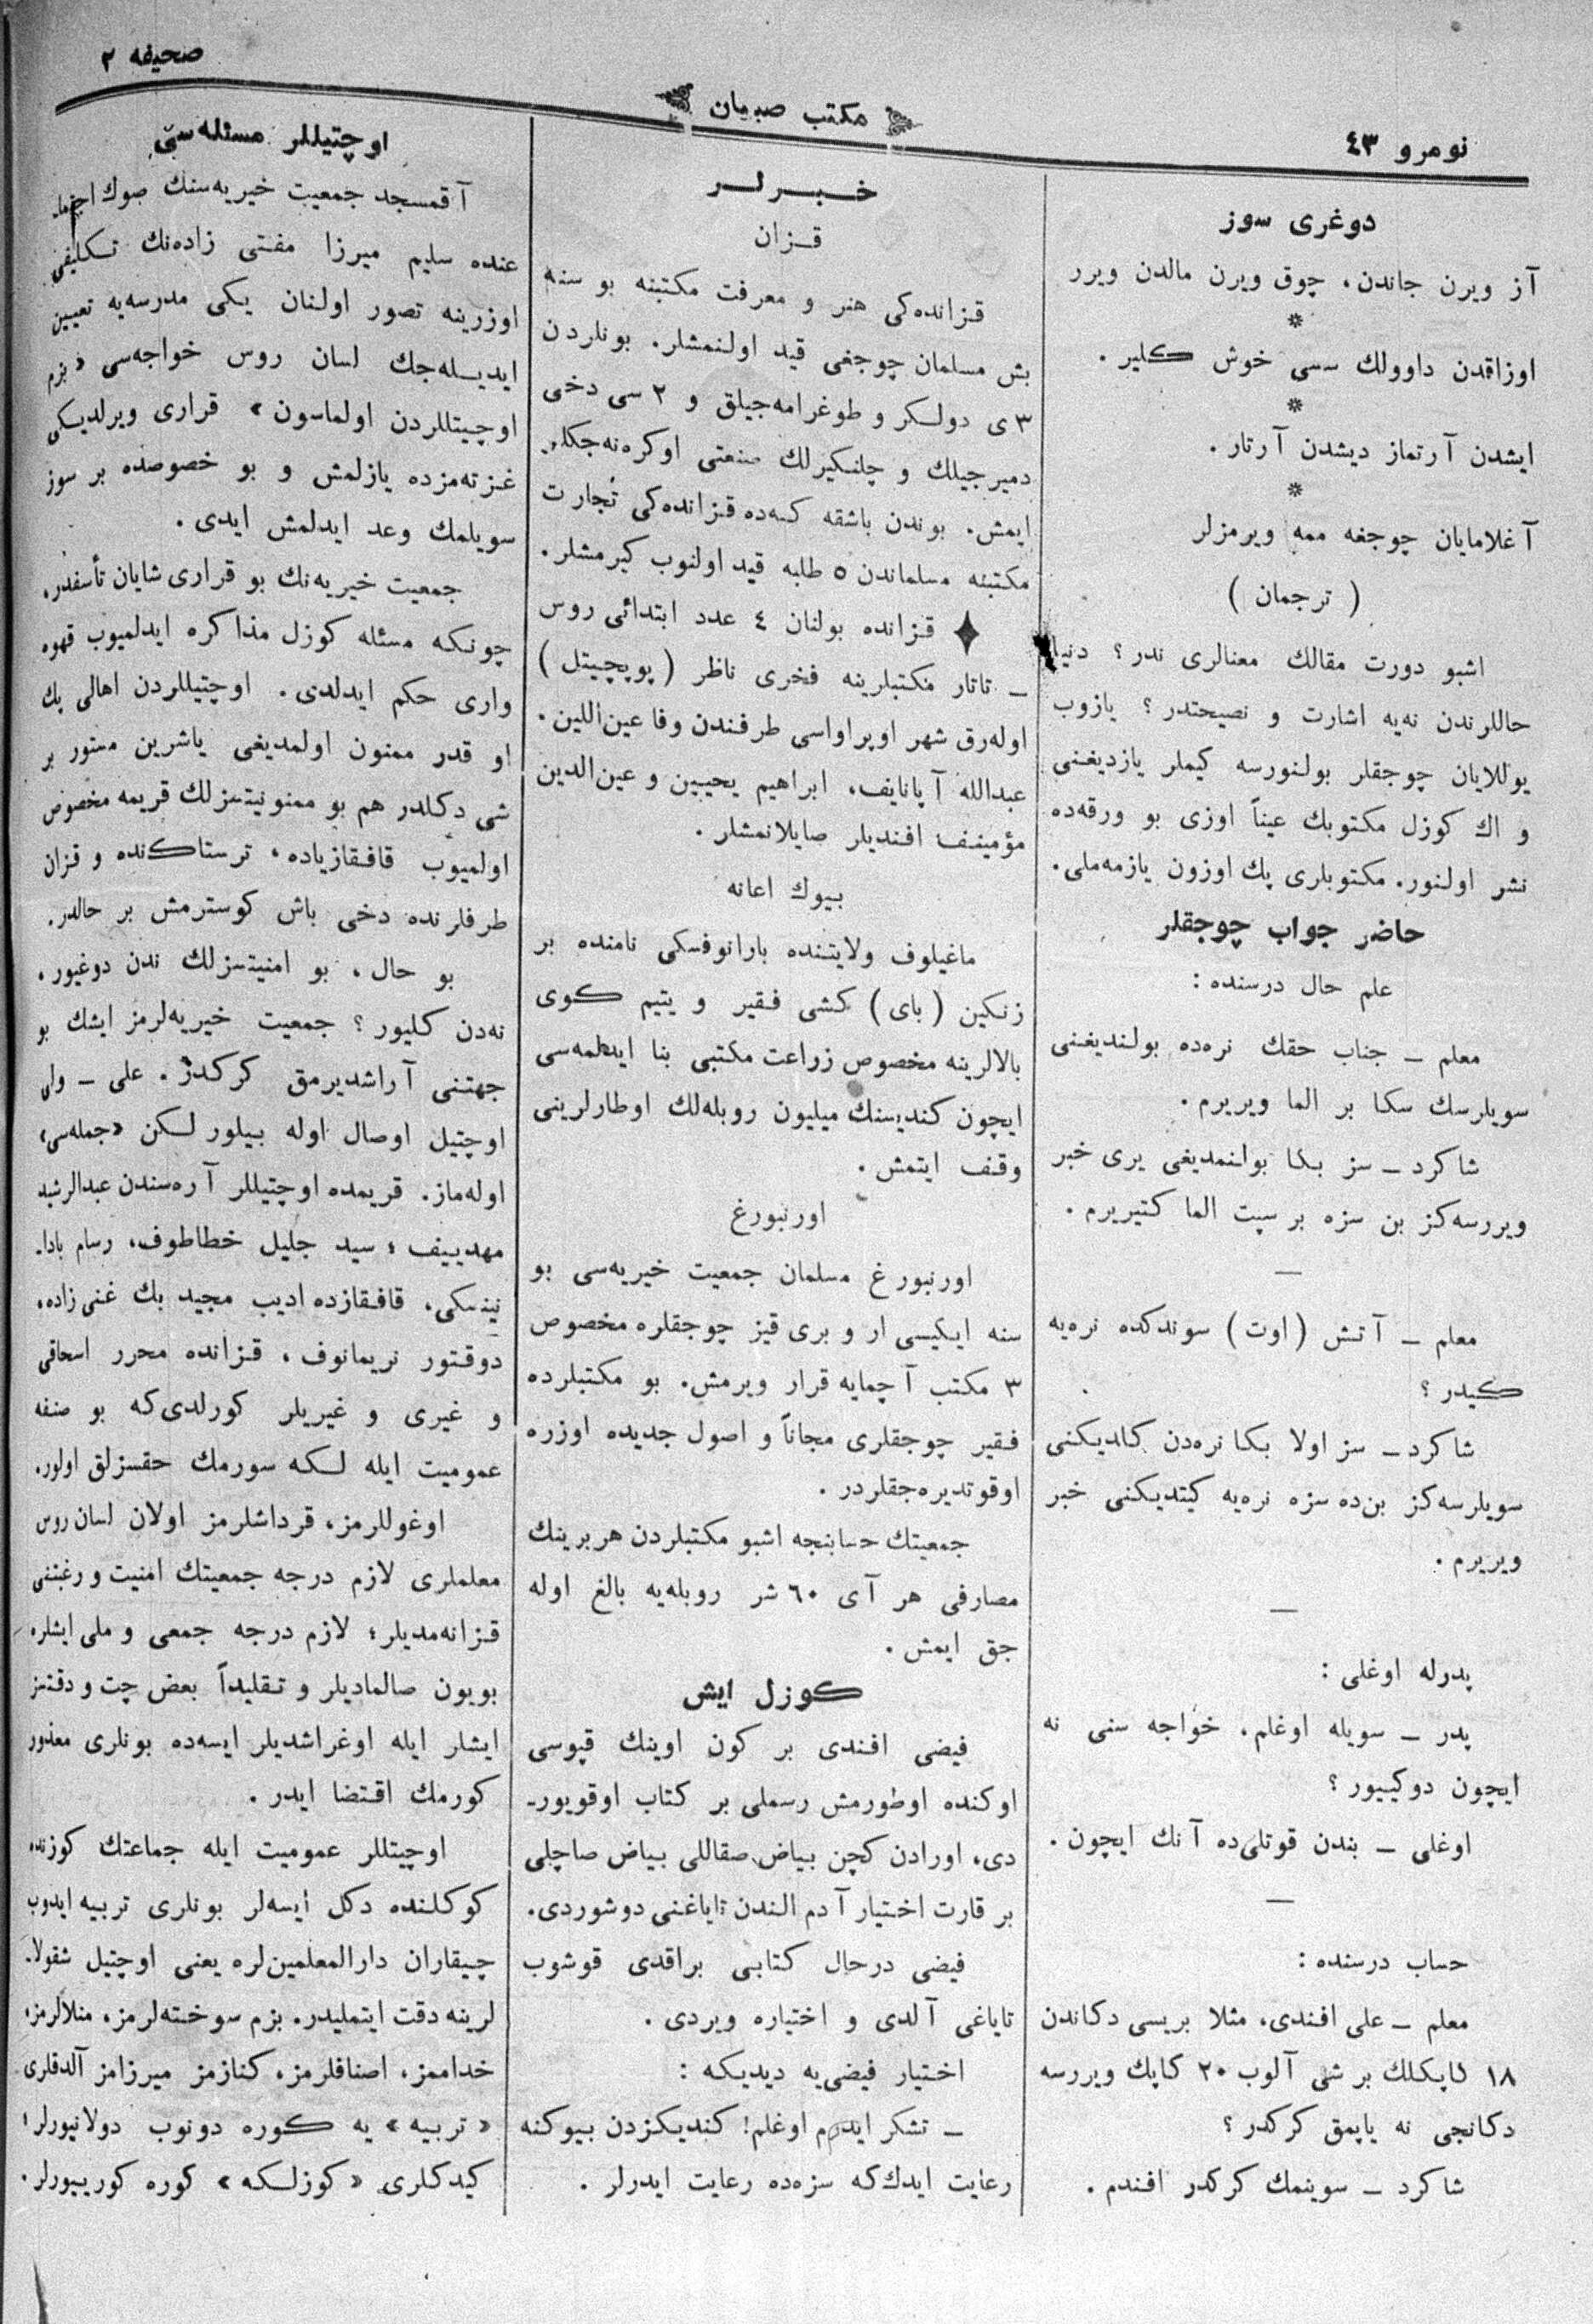 صحیفه ۲
مکتب صبیان
نومرو ٤٣
دوغری سوز
آز ویرن جاندن، چوق ویرن مالدن ویرر
*
اوزاقدن داوولك سسی خوش كلیر.
*
ایشدن آرتماز دیشدن آرتار.
*
آغلامایان چوجغه ممه ویرمزلر
( ترجمان )
اشبو دورت مقالك معنالری ندر؟ دنیا
حاللرندن نه‌یه اشارت و نصیحتدر؟ یازوب
یوللایان چوجقلر بولنورسه كیملر یازدیغنی
و اك كوزل مكتوبك عیناً اوزی بو ورقه‌ده
نشر اولنور. مكتوبلری پك اوزون یازمه‌ملی.
حاضر جواب چوجقلر
علم حال درسنده:
معلم ــ جناب حقك نره‌ده بولندیغنی
سویلرسك سكا بر الما ویریرم.
شاكرد ــ سز بكا بولنمدیغی یری خبر
ویررسه‌كز بن سزه بر سپت الما كتیریرم.
—
معلم ــ آتش (اوت) سوندكده نره‌یه
كیدر؟
شاكرد ــ سز اولا بكا نره‌دن كلدیكنی
سویلرسه‌كز بن‌ده سزه نره‌یه كیتدیكنی خبر
ویریرم.
—
پدرله اوغلی:
پدر ــ سویله اوغلم، خواجه سنی نه
ایچون دوكییور؟
اوغلی ــ بندن قوتلی‌ده آنك ایچون.
—
حساب درسنده:
معلم ــ علی افندی، مثلا بریسی دكاندن
١٨ كاپكلك بر شی آلوب ٢٠ كاپك ویررسه
دكانجی نه یاپمق كركدر؟
شاكرد ــ سوینمك كركدر افندم.
خبرلر
قزان
قزانده‌كی هنر و معرفت مكتبنه بو سنه
بش مسلمان چوجغی قید اولنمشلر. بونلردن
٣ ی دولكر و طوغرامه‌جیلق و ٢ سی دخی
دمیرجیلك و چلنكیرلك صنعتی اوكره‌نه‌جكلر
ایمش. بوندن باشقه كه‌ده قزانده‌كی تجارت
مكتبنه مسلماندن ٥ طلبه قید اولنوب كیرمشلر.
قزانده بولنان ٤ عدد ابتدائی روس
ــ تاتار مكتبلرینه فخری ناظر (پوپچیتل)
اوله‌رق شهر اوپراواسی طرفندن وفا عین‌اللین.
عبدالله آپانایف، ابراهیم یحیین و عین‌الدین
مؤمینف افندیلر صایلانمشلر.
بیوك اعانه
ماغیلوف ولایتنده بارانوفسكی نامنده بر
زنكین (بای) كشی فقیر و یتیم كوی
بالالرینه مخصوص زراعت مكتبی بنا ایدلمه‌سی
ایچون كندیسنك میلیون روبله‌لك اوطارلرینی
وقف ایتمش.
اورنبورغ
اورنبورغ مسلمان جمعیت خیریه‌سی بو
سنه ایكیسی ار و بری قیز چوجقلره مخصوص
٣ مكتب آچمایه قرار ویرمش. بو مكتبلرده
فقیر چوجقلری مجاناً و اصول جدیده اوزره
اوقوتدیره‌جقلردر.
جمعیتك حسابنجه اشبو مكتبلردن هربرینك
مصارفی هر آی ٦٠ شر روبله‌یه بالغ اوله
جق ایمش.
كوزل ایش
فیضی افندی بر كون اوینك قپوسی
اوكنده اوطورمش رسملی بر كتاب اوقویور-
دی، اورادن كچن بیاض صقاللی بیاض صاچلی
بر قارت اختیار آدم الندن تایاغنی دوشوردی.
فیضی درحال كتابی براقدی قوشوب
تایاغی آلدی و اختیاره ویردی.
اختیار فیضی‌یه دیدیكه:
ــ تشكر ایدرم اوغلم! كندیكزدن بیوكنه
رعایت ایدك‌كه سزه‌ده رعایت ایدرلر.
اوچتیللر مسئله‌سی
آقمسجد جمعیت خیریه‌سنك صوك اجتما-
عنده سلیم میرزا مفتی زاده‌نك تكلیفی
اوزرینه تصور اولنان یكی مدرسه‌یه تعیین
ایدیله‌جك لسان روس خواجه‌سی «بزم
اوچیتللردن اولماسون» قراری ویرلدیكی
غزته‌مزده یازلمش و بو خصوصده بر سوز
سویلمك وعد ایدلمش ایدی.
جمعیت خیریه‌نك بو قراری شایان تأسفدر،
چونكه مسئله كوزل مذاكره ایدلمیوب قهوه
واری حكم ایدلدی. اوچتیللردن اهالی پك
او قدر ممنون اولمدیغی یاشرین مستور بر
شی دكلدر هم بو ممنونیتسزلك قریمه مخصوص
اولمیوب قافقازیاده، ترستاكنده و قزان
طرفلرنده دخی باش كوسترمش بر حالدر.
بو حال، بو امنیتسزلك ندن دوغیور،
نه‌دن كلیور؟ جمعیت خیریه‌لرمز ایشك بو
جهتنی آراشدیرمق كركدر. علی ــ ولی
اوچتیل اوصال اوله بیلور لكن «جمله‌سی»
اوله‌ماز. قریمده اوچتیللر آره‌سندن عبدالرشید
مهدییف، سید جلیل خطاطوف، رسام بادا-
نینسكی، قافقازده ادیب مجید بك غنی زاده،
دوقتور نریمانوف، قزانده محرر اسحاقی
و غیری و غیریلر كورلدی‌كه بو صنفه
عمومیت ایله لكه سورمك حقسزلق اولور.
اوغوللرمز، قرداشلرمز اولان لسان روس
معلملری لازم درجه جمعیتك امنیت و رغبتنی
قزانه‌مدیلر؛ لازم درجه جمعی و ملی ایشلره
بویون صالمادیلر و تقلیداً بعض چت و دقتسز
ایشلر ایله اوغراشدیلر ایسه‌ده بونلری معذور
كورمك اقتضا ایدر.
اوچیتللر عمومیت ایله جماعتك كوزنده
كوكلنده دكل ایسه‌لر بونلری تربیه ایدوب
چیقاران دارالمعلمین‌لره یعنی اوچتیل شقولا-
لرینه دقت ایتملیدر. بزم سوخته‌لرمز، منلالرمز،
خداممز، اصنافلرمز، كنازمز میرزامز آلدقلری
«تربیه» یه كوره دونوب دولانیورلر،
كیدكلری «كوزلكه» كوره كورییورلر.